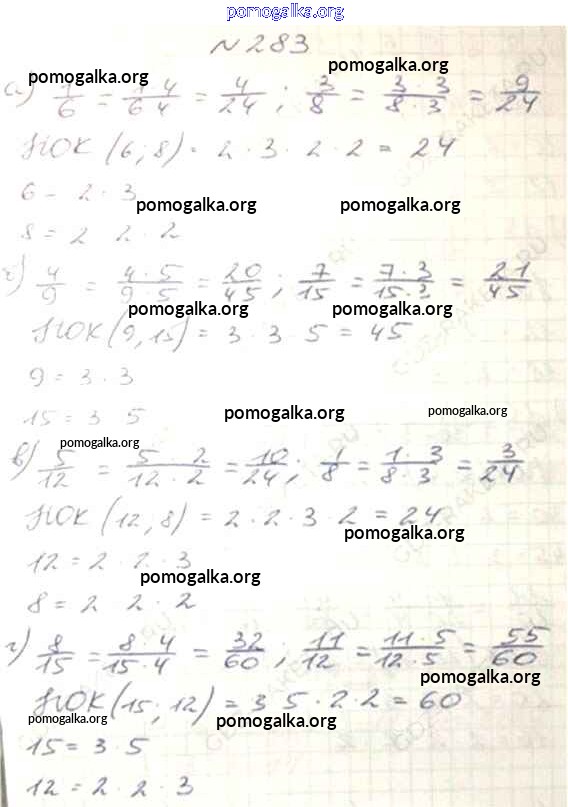 pomogalka.org
N 283
pomogalka.org pomogalka.org
а) 1/6 = 1 4/6 4 = 4/24 ; 3/8 = 3 · 3/8 · 3 = 9/24
НОК (6; 8) = 2 · 3 · 2 · 2 = 24
6 = 2 · 3
pomogalka.org pomogalka.org
8 = 2 2 · 2
4/9 = 4 · 5/9 · 5 = 20/45 ; 7/15 = 7 · 3/15 · 3 = 21/45
pomogalka.org pomogalka.org
НОК (9, 15) = 3 · 3 · 5 = 45
9 = 3 · 3
15 = 3 5
pomogalka.org pomogalka.org
pomogalka.org
в) 5/12 = 5 · 2/12 · 2 = 10/24 ; 1/8 = 1 · 3/8 · 3 = 3/24
НОК (12, 8) = 2 · 2 · 3 · 2 = 24
pomogalka.org
12 = 2 · 2 · 3
pomogalka.org
8 = 2 2 · 2
г) 8/15 = 8 · 4/15 · 4 = 32/60 ; 11/12 = 11 · 5/12 · 5 = 55/60
pomogalka.org
НОК (15; 12) = 3 5 · 2 · 2 = 60
pomogalka.org pomogalka.org
15 = 3 · 5
12 = 2 · 2 · 3